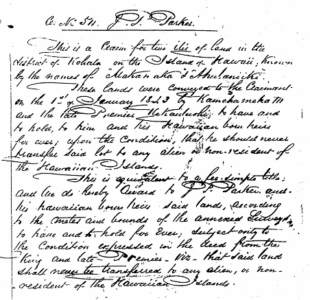 C. N. 52. J. P. Parker
This is a claim for two ilis of land in the
district of Kohala on the Island of Hawaii, known
by the names of
These lands were conveyed to the Claimant
on the 1st of January 1843 by Kamehameha III
and the late Premier Kekauluohi, to have and
to hold, to him and his Hawaiian born heirs
for ever, upon the Condition, that he should never
transfer said lot to any alien or non-resident of
the Hawaiian Islands.
This is equivalent to a fee simple title;
and we do hereby award to J. P. Parker and
his hawaiian born heirs said lands, according
to the metes and bounds of the annexed Surveys
to have and to hold for ever, subject only to
the Condition expressed in the deed from the
King and late Premier - viz - that said land
shall never be transferred to any alien, or non-
resident of the Hawaiian Islands.